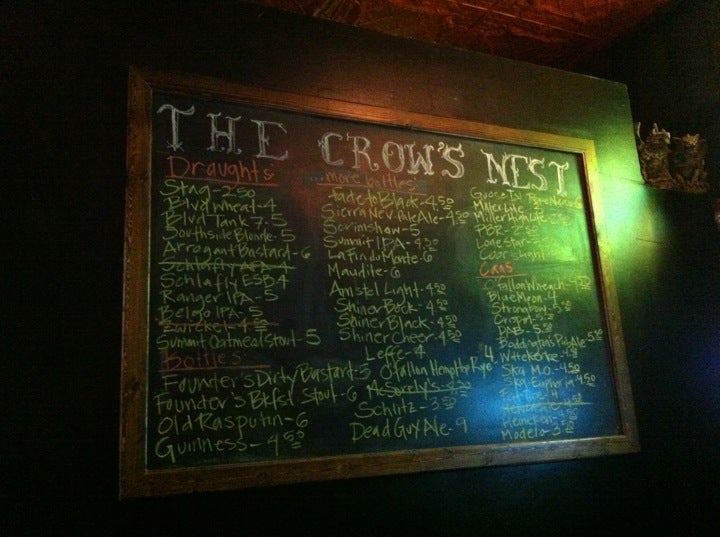 THE CROW'S NEST
Draughts
Stag - 3.50
Blvd Wheat - 4
Blvd Tank 7 - 5
Southside Blonde - 5
Arrogant Bastard - 6
Schlafly
Schlafly ESB 4
Ranger IPA - 5
Belgo IPA - 5
Zwickel - 4.50
Summit Oatmeal Stout - 5
Bottles
Founder's Dirty Bastard - 5
Founder's Bkfst Stout - 6
Old Rasputin - 6
Guinness - 4.50
...more bottles
Fade to Black - 4.50
Sierra Nev. Pale Ale - 4.50
Scrimshaw - 5
Summit IPA - 4.50
La Fin du Monde - 6
Maudite - 6
Amstel Light - 4.50
Shiner Bock - 4.50
Shiner Black - 4.50
Shiner Cheer 4.50
Leffe - 4
O'fallon Hemp Hop Rye 4
McSorely's - 4.50
Schlitz - 3.50
Dead Guy Ale - 9
Goose Is.
Miller Lite
Miller High Life
PBR - 2.50
Lone Star
Coors Light
Cans
O'fallon Wheach
Blue Moon - 4
Strongbow
DAB - 5.50
Boddingtons Pub Ale 5.50
Wittekerke
Ska M.O. - 4.50
Ska Euphoria 4.50
Heineken
Modelo - 3.50